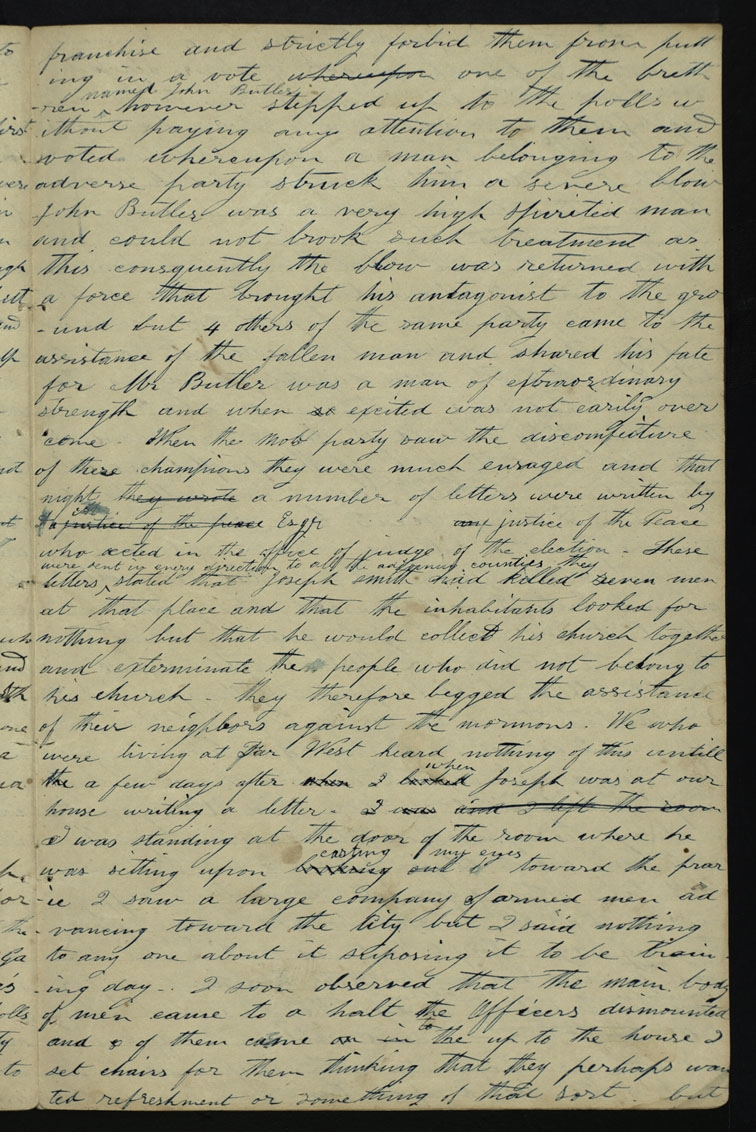 franchise and strictly forbid them from putt
ing in a vote whereupon one of the breth
named John Butler
-ren however stepped up to the polls w
ithout paying any attention to them and
voted whereupon a man belonging to the
adverse party struck him a severe blow
John Butler was a very high spirited man
and could not brook such treatment as
this consquently the blow was returned with
a force that brought his antagonist to the gro
-und but 4 others of the same party came to the
assistance of the fallen man and shared his fate
for Mr Butler was a man of extraordinary
strength and when so excited was not easily over
come - When the Mob party saw the discomfiture
of these champions they were much enraged and that
night they wrote a number of letters were written by
a justice of the peace Esqr justice of the Peace
who acted in the office of judge of the election - These
were sent in every direction to all the adjoining counties they
letters stated that Joseph smith had killed seven men
at that place and that the inhabitants looked for
nothing but that he would collect his church together
and exterminate the people who did not belong to
his church - they therefore begged the assistance
of their neighbors against the mormons. We who
were living at Far West heard nothing of this untill
when
the a few days after when I looked Joseph was at our
house writing a letter - I was and I left the room
I was standing at the door of the room where he
casting my eyes
was setting upon looking out toward the prar
-ie I saw a large company of armed men ad
-vancing toward the City but I said nothing
to any one about it suposing it to be train-
ing day - I soon observed that the main body
of men came to a halt the Officers dismounted
to
and 8 of them came on in the up to the house I
set chairs for them thinking that they perhaps wan
ted refreshment or something of that sort. but